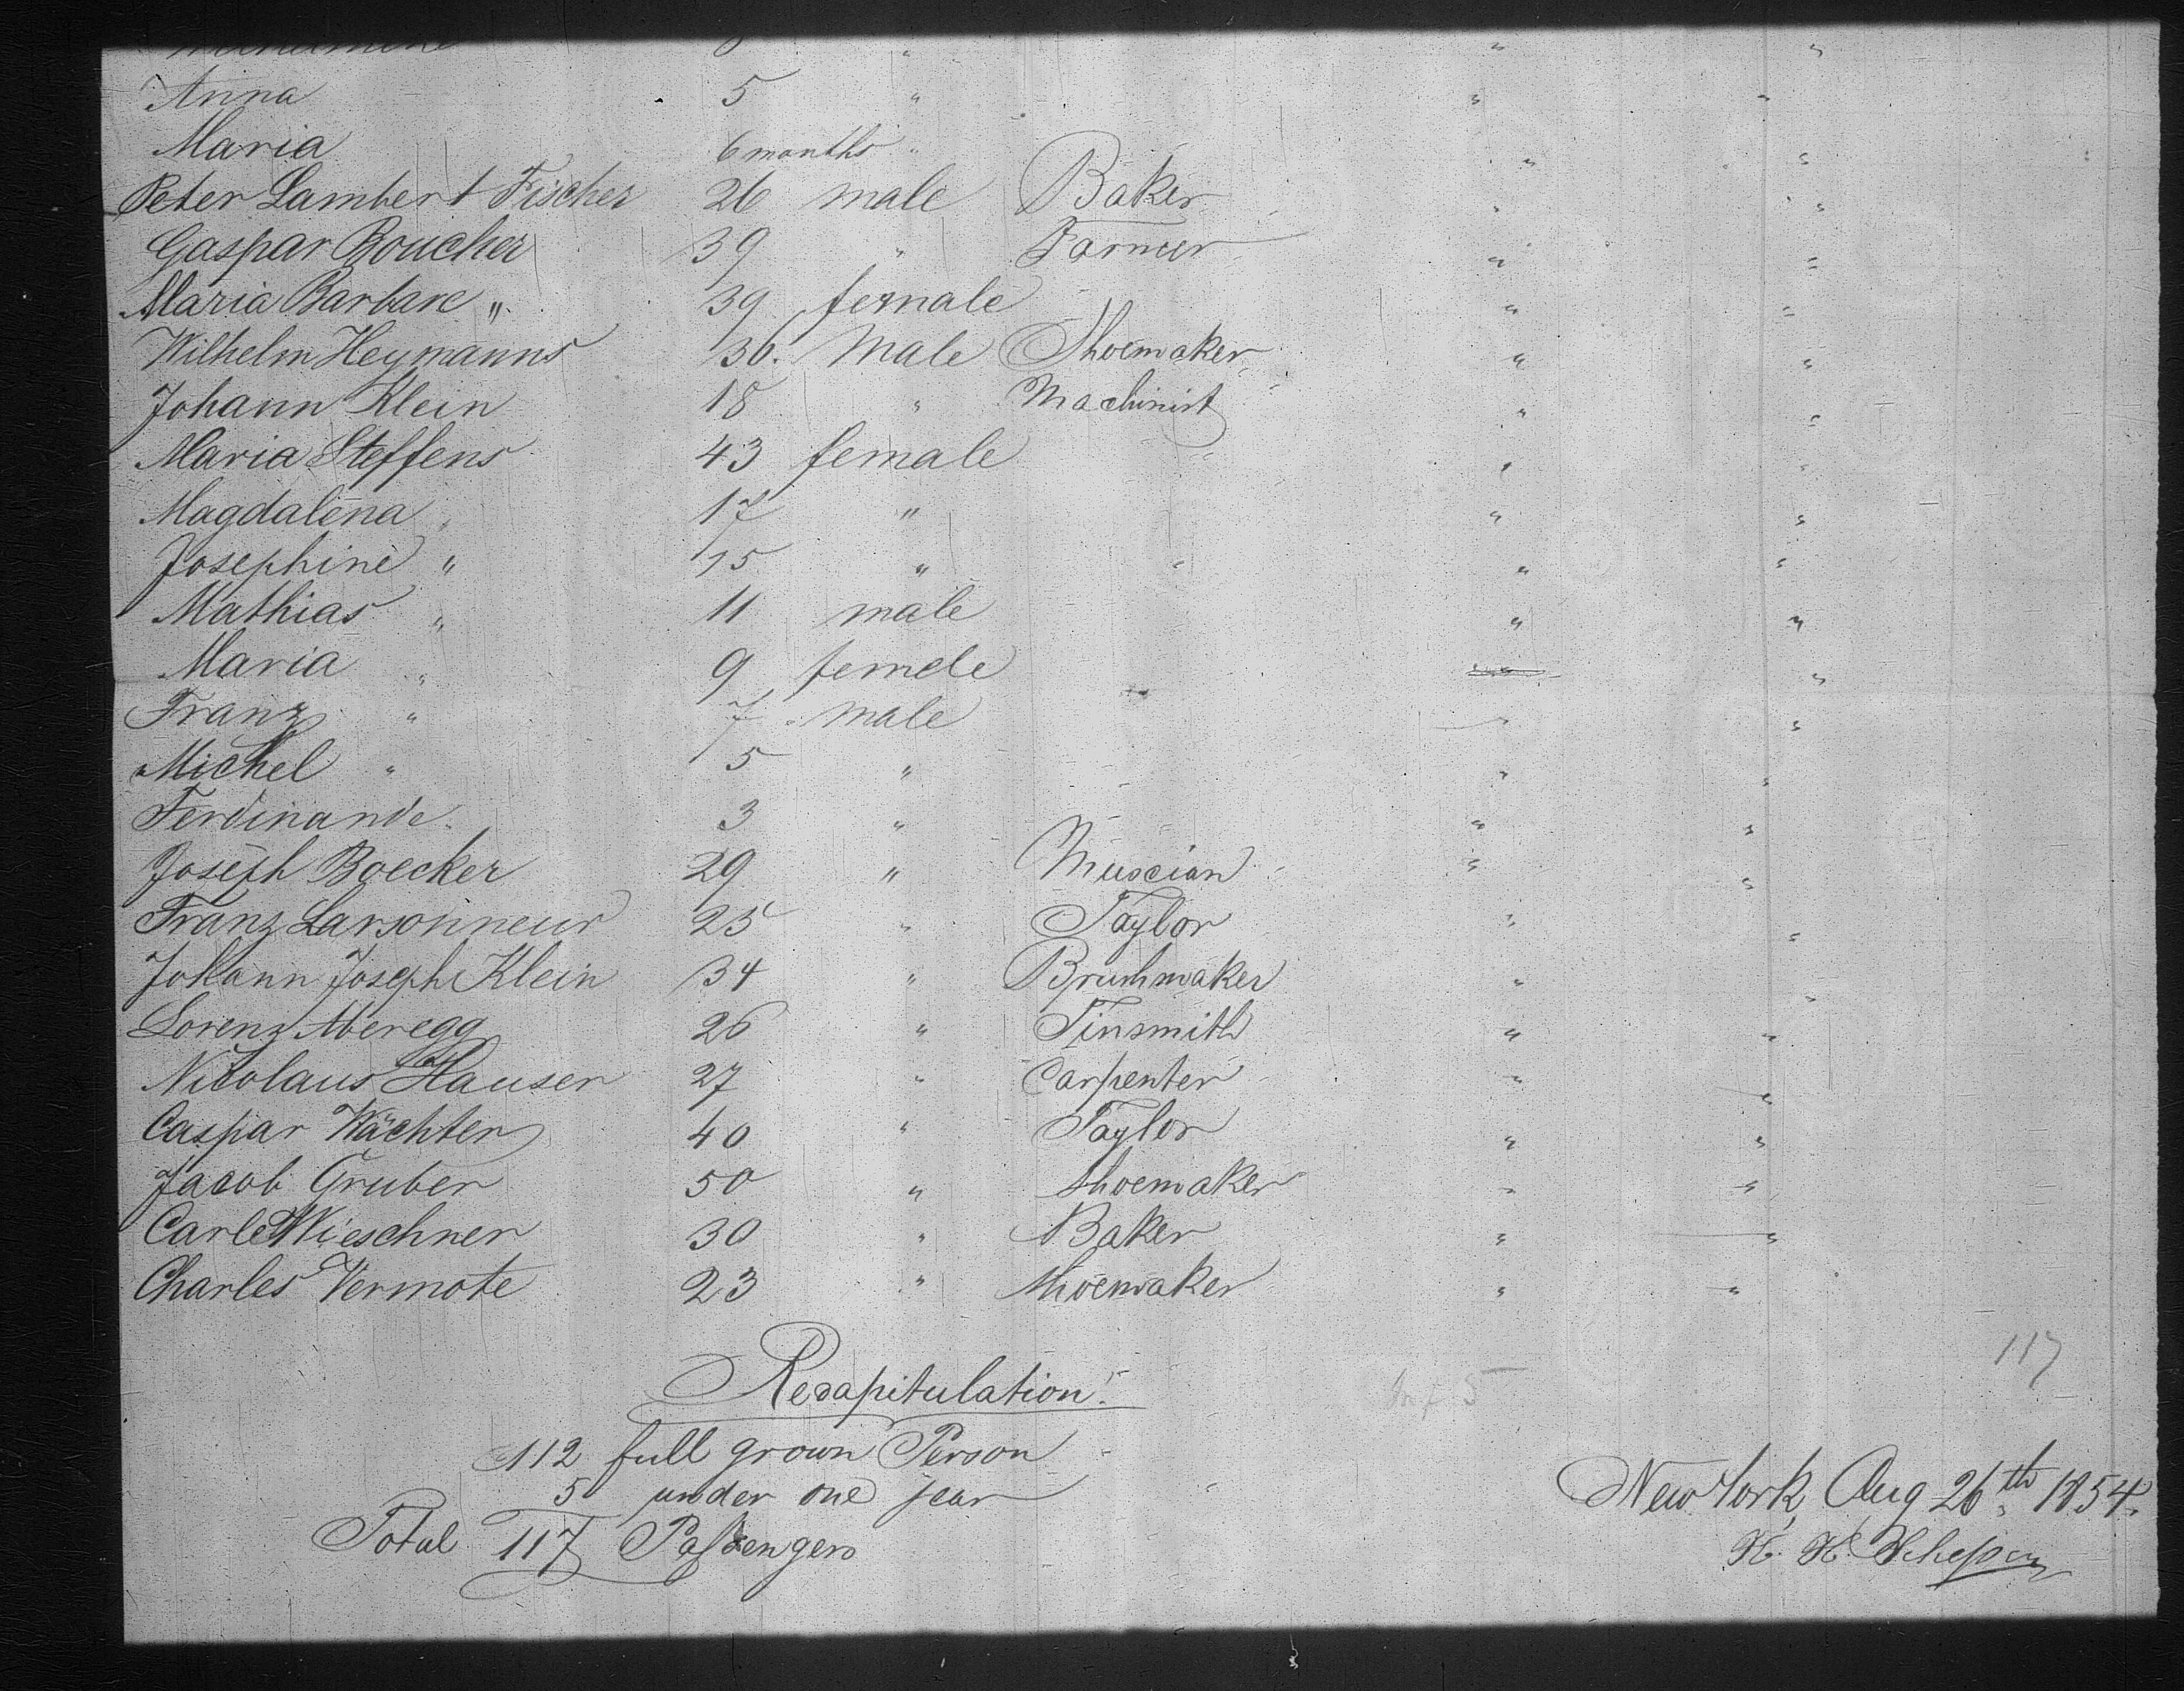 Anna 5 " " "
Maria 6 months " " "
Peter Lambert Fischer 26 male Baker " "
Gaspar Boucher 39 " Farmer " "
Maria Barbare " 39 female " "
Wilhelm Heymanns 36. Male Shoemaker " "
Johann Klein 18 " Machinist " "
Maria Steffens 43 female " "
Magdalena " 17 " " "
Josephine " 15 " " "
Mathias " 11 male " "
Maria " 9 femele " "
Franz " 7 male " "
Michel " 5 " " "
Ferdinande 3 " " "
Joseph Boecker 29 " Muscian " "
Franz Larsonneur 25 " Taylor " "
Johann Joseph Klein 34 " Brushmaker " "
Lorenz Aberegg 26 " Tinsmith " "
Nicolaus Hauser 27 " Carpenter " "
Caspar Wächter 40 " Taylor " "
Jacob Gruber 50 " Shoemaker " "
Carl Wieschner 30 " Baker " "
Charles Vermote 23 " Shoemaker " "
117
Recapitulation!
Inf. 5
112 full grown Person
5 under one year
Total 117 Passengers
New York, Aug 26th 1854.
H. H.